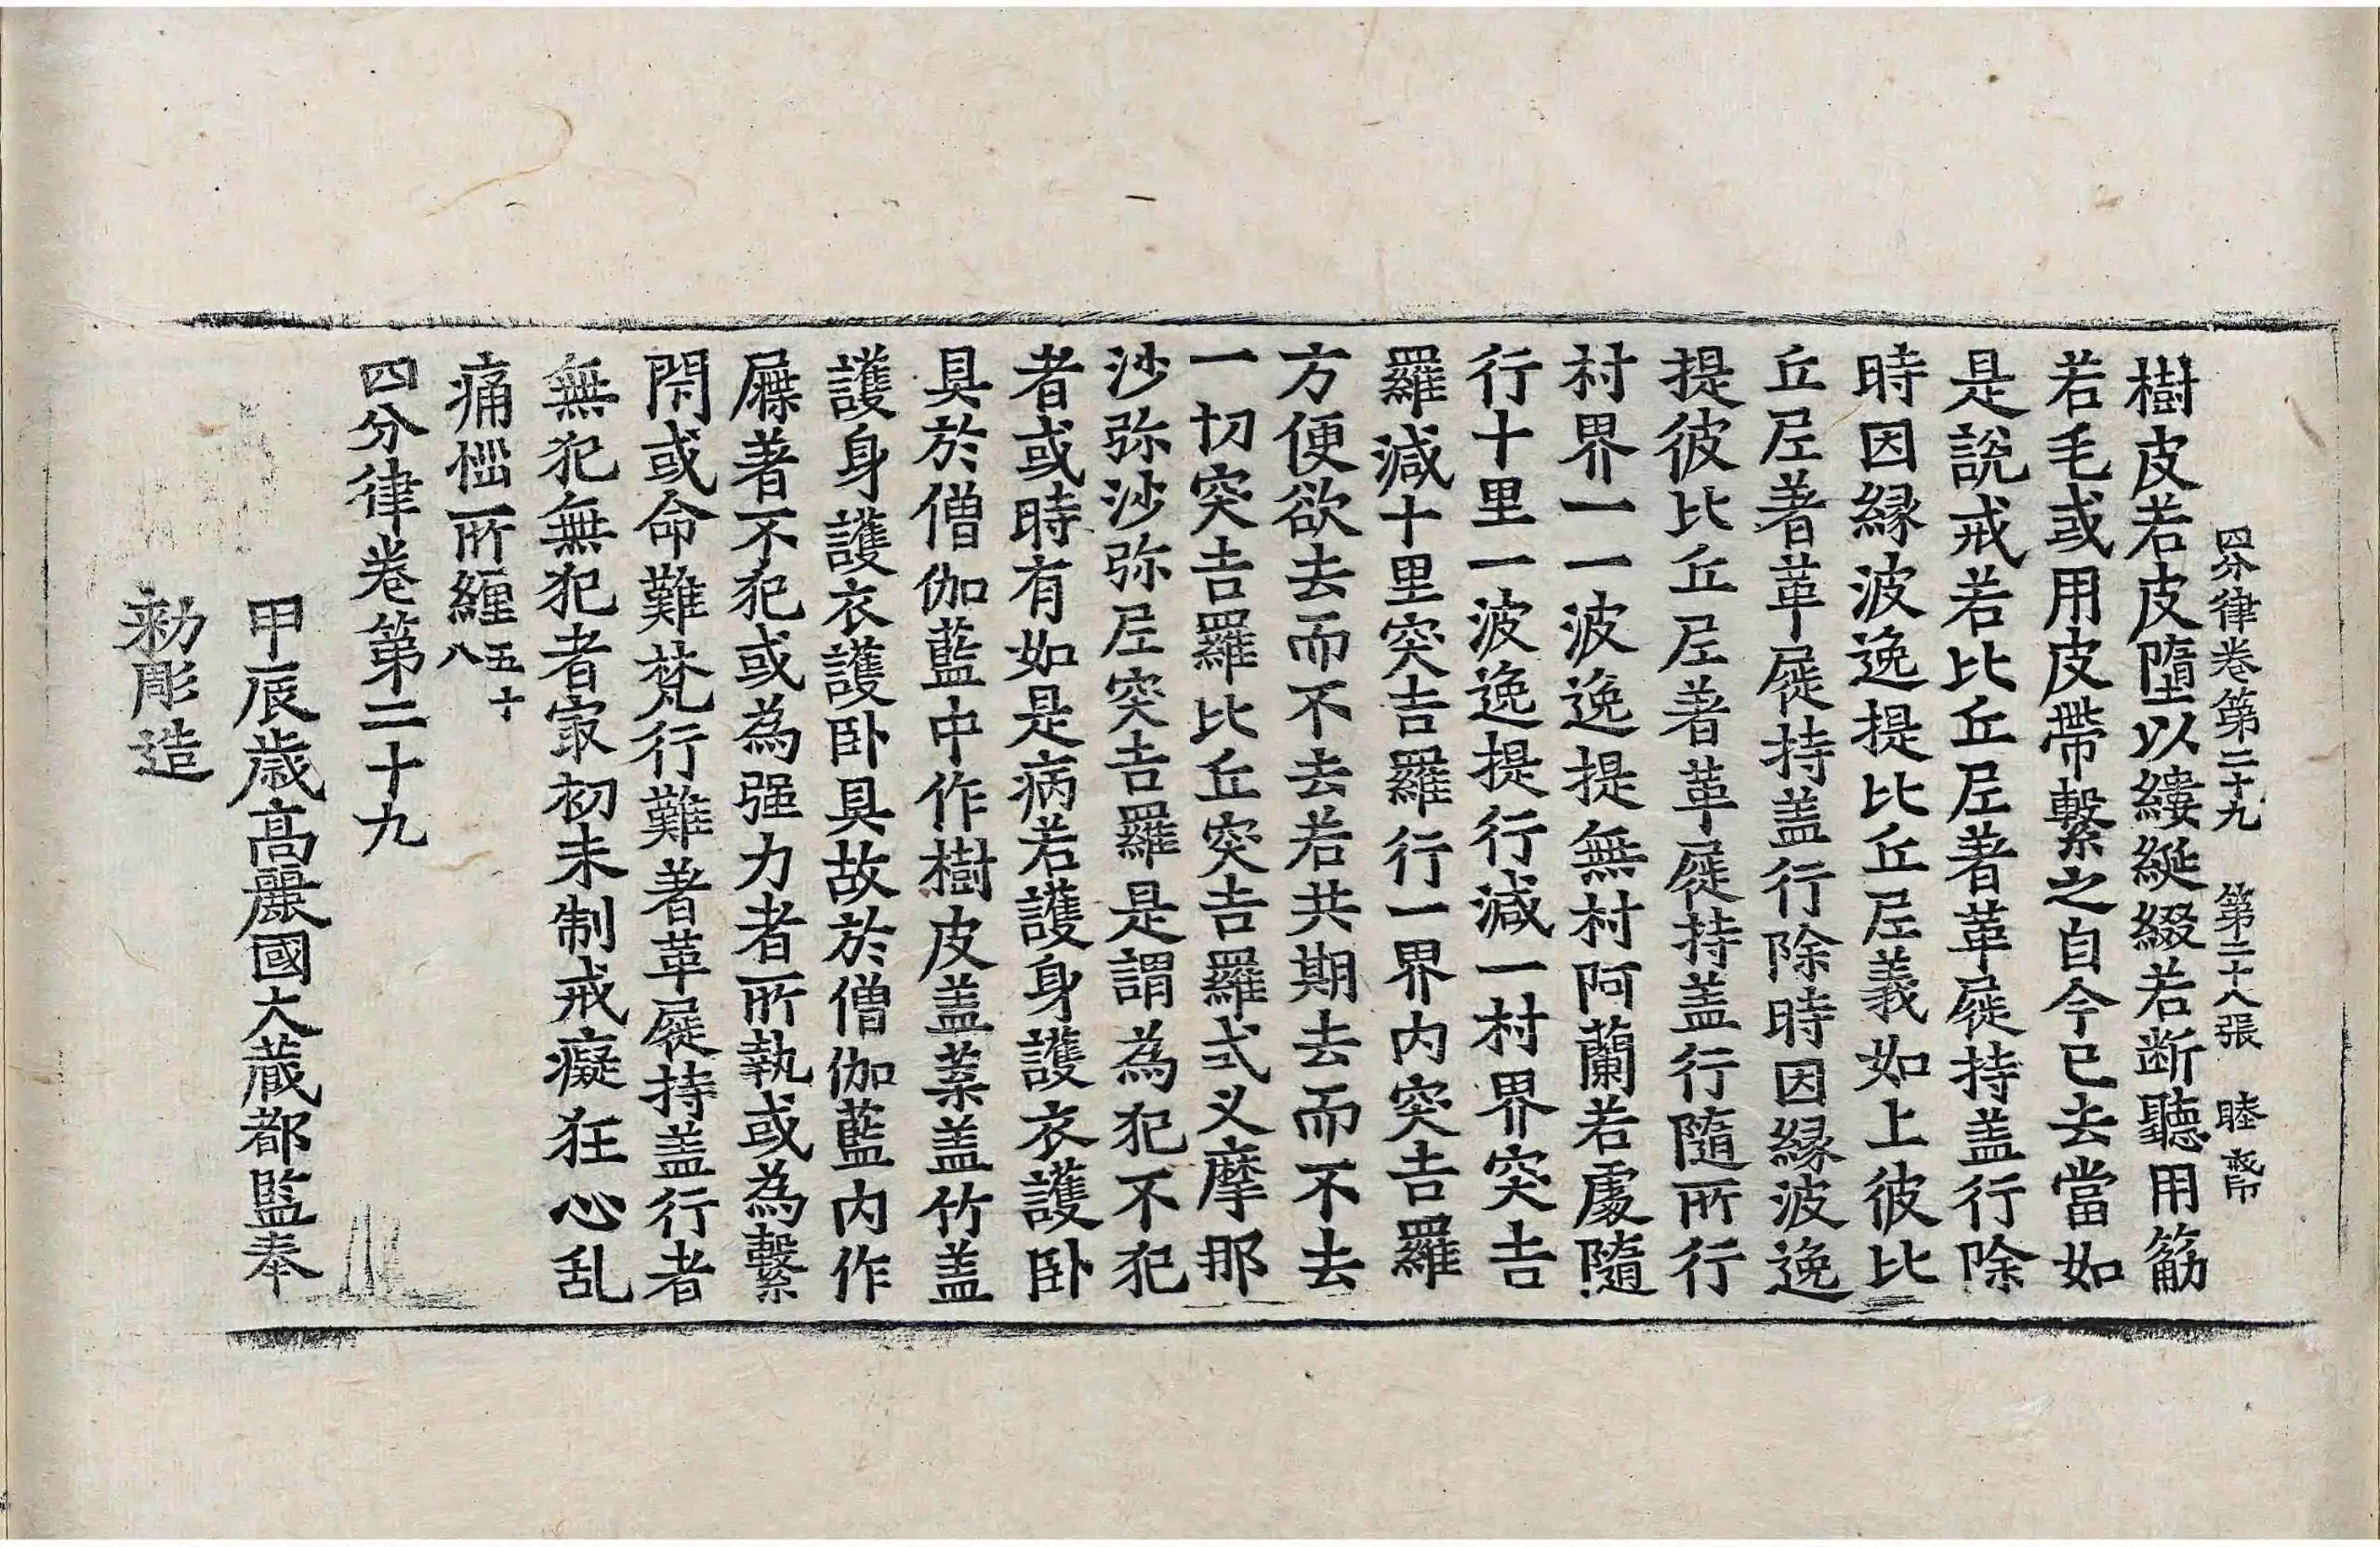 四分律卷第二十九 第二十八張 睦
樹皮若皮墮以縷綖綴若断聽用筋
若毛或用皮帶繫之自今已去當如
是說戒若比丘尼著革屣持盖行除
時因縁波逸提比丘尼義如上彼比
丘尼著革屣持盖行除時因縁波逸
提彼比丘尼著革屣持盖行隨所行
村界一一波逸提無村阿蘭若處隨
行十里一波逸提行減一村界突吉
羅減十里突吉羅行一界内突吉羅
方便欲去而不去若共期去而不去
一切突吉羅比丘突吉羅式叉摩那
沙弥沙弥尼突吉羅是謂為犯不犯
者或時有如是病若護身護衣護卧
具於僧伽藍中作樹皮盖葉盖竹盖
護身護衣護卧具故於僧伽藍内作
屧著不犯或為强力者所執或為繫
閇或命難梵行難著革屣持盖行者
無犯無犯者㝡初未制戒癡狂心乱
痛惱所纏五十八
四分律卷第二十九
甲辰歳高麗國大蔵都監奉
勑彫造